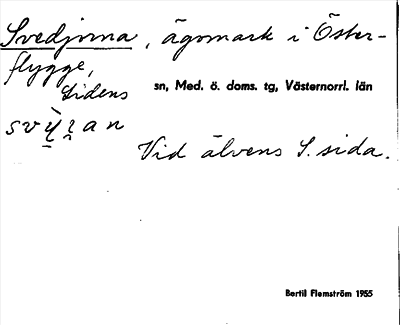 Svedjorna, ägomark i Öster-
flygge,
Lidens sn, Med. ö. doms. tg, Västernorrl. län
Vid älvens S. sida.
Bertil Flemström 1955